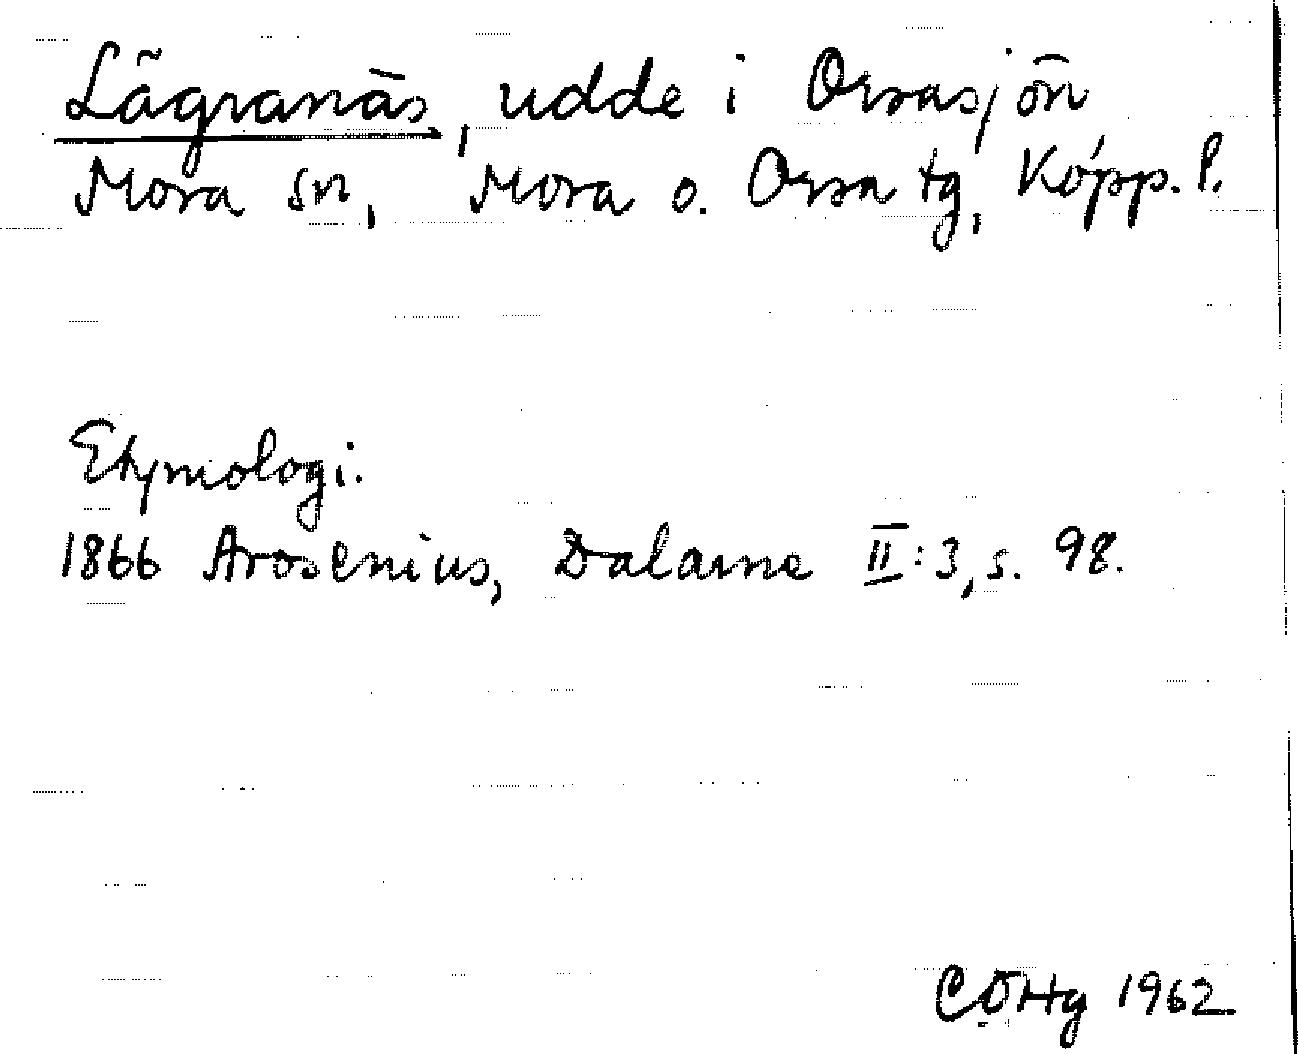 Lägranäs, udde i Orsasjön
Mora sn, Mora o. Orsa tg, Kopp. l.
Etymologi.
1866 Arosenius, Dalarne II:3, s. 98.
1962